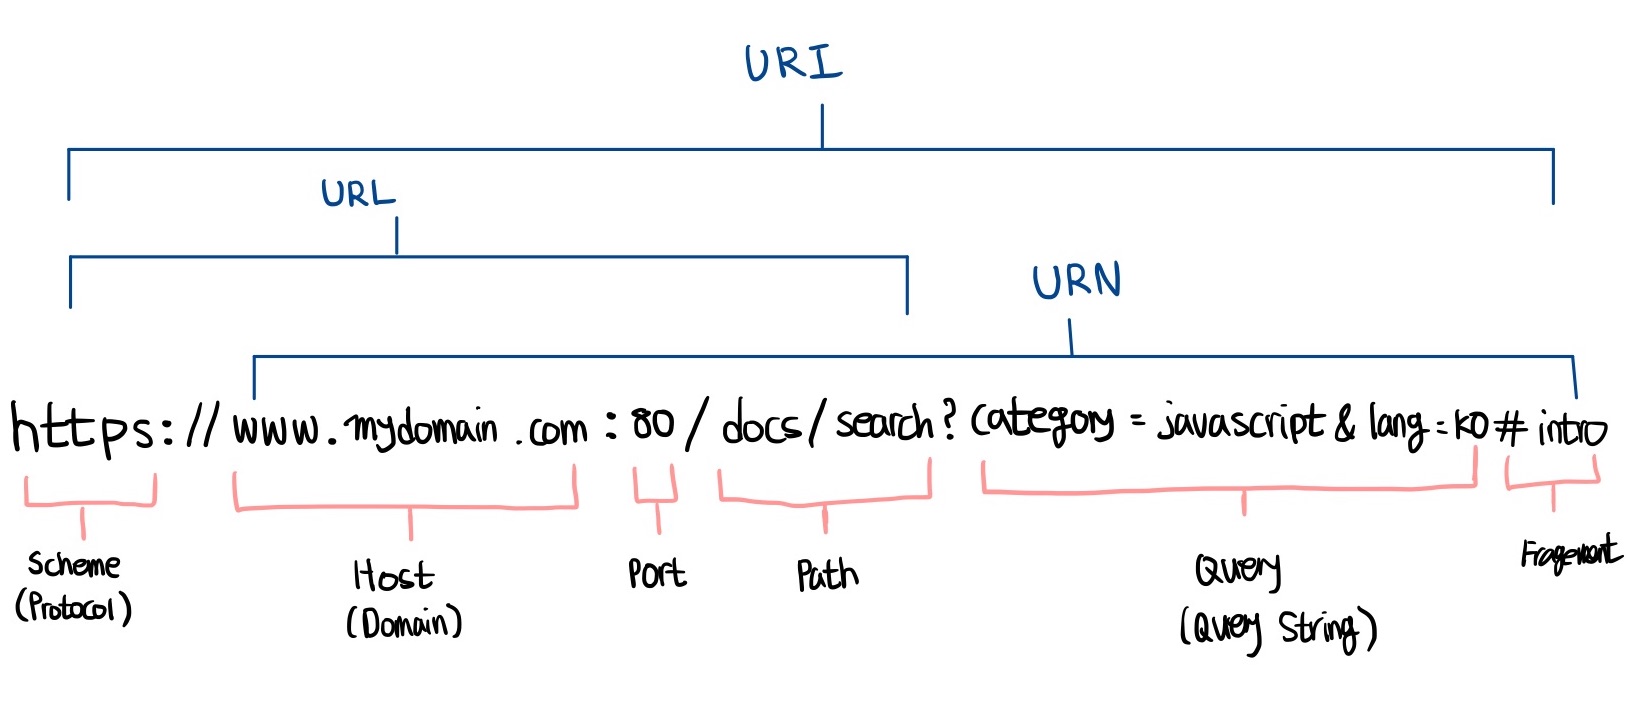 URI
URL
URN
https://www.mydomain.com:80/docs/search?category=javascript&lang=ko#intro
Scheme
(Protocol)
Host
(Domain)
Port
Path
Query
(Query String)
Fragement